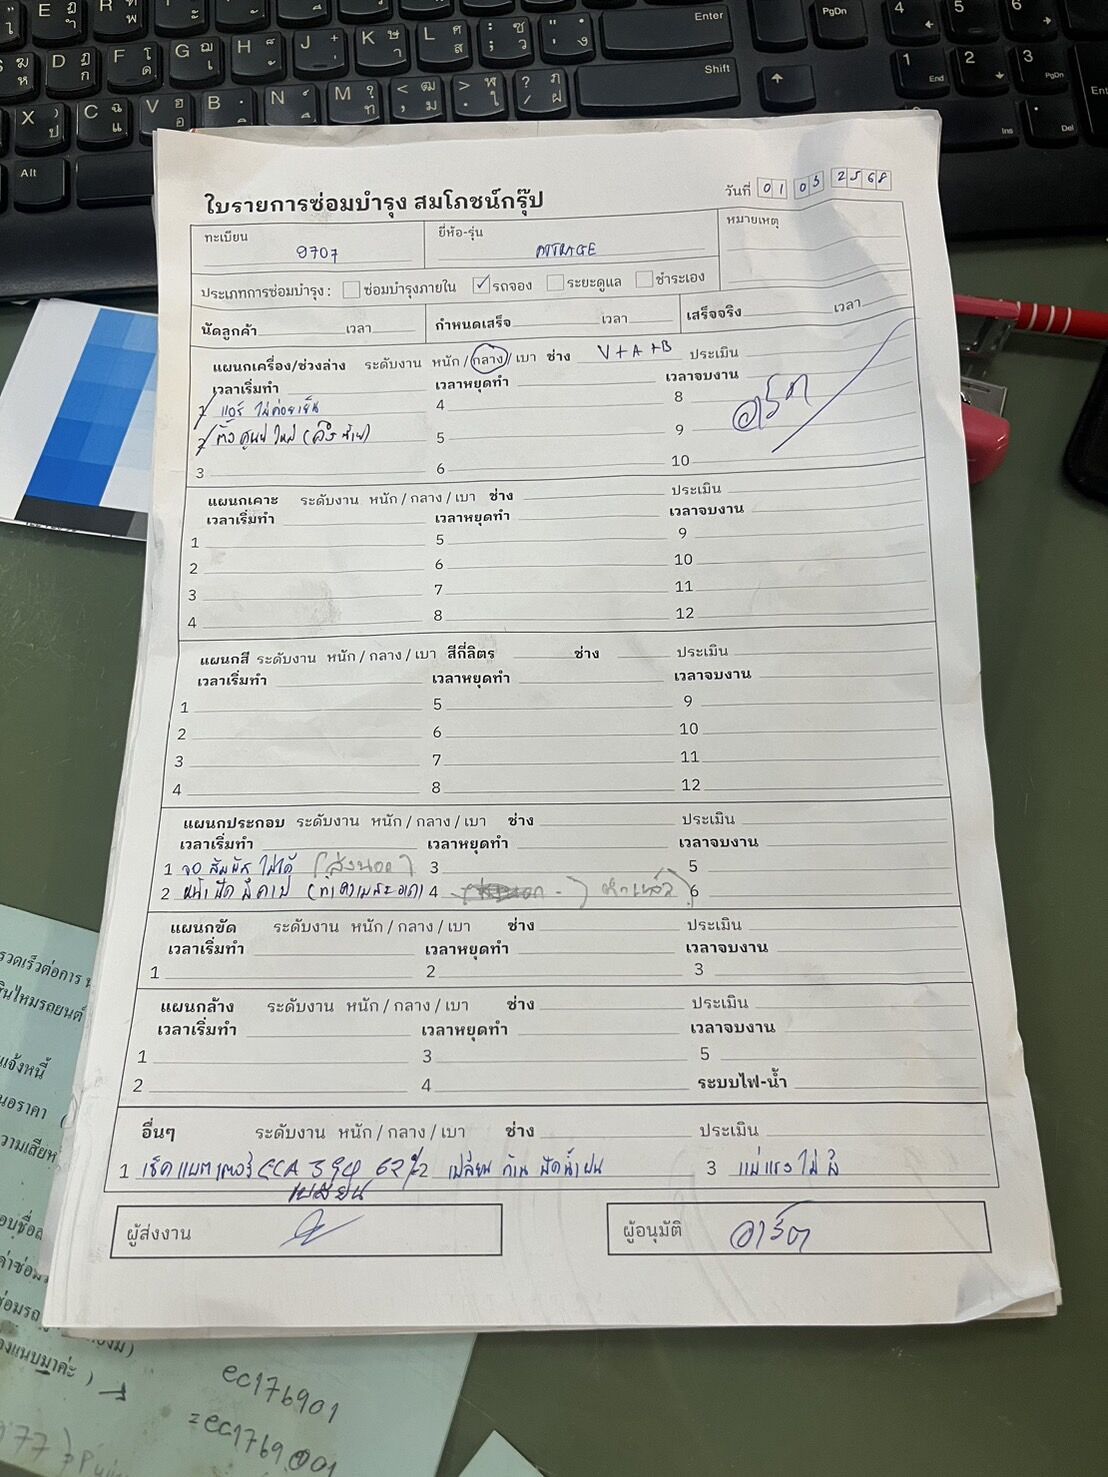 ใบรายการซ่อมบำรุง สมโภชน์กรุ๊ป
วันที่ 01 03 2568
ทะเบียน 9707 ยี่ห้อ-รุ่น ATTRAGE หมายเหตุ
ประเภทการซ่อมบำรุง : ซ่อมบำรุงภายใน ✓ รถจอง ระยะดูแล ชำระเอง
นัดลูกค้า เวลา กำหนดเสร็จ เวลา เสร็จจริง เวลา
แผนกเครื่อง/ช่วงล่าง ระดับงาน หนัก / กลาง / เบา ช่าง V+A+B ประเมิน
เวลาเริ่มทำ เวลาหยุดทำ เวลาจบงาน
1 แอร์ ไม่ค่อยเย็น 4 8 อาร์ต
2 ตั้งศูนย์ ใหม่ (ดึงซ้าย) 5 9
3 6 10
แผนกเคาะ ระดับงาน หนัก / กลาง / เบา ช่าง ประเมิน
เวลาเริ่มทำ เวลาหยุดทำ เวลาจบงาน
1 5 9
2 6 10
3 7 11
4 8 12
แผนกสี ระดับงาน หนัก / กลาง / เบา สีกี่ลิตร ช่าง ประเมิน
เวลาเริ่มทำ เวลาหยุดทำ เวลาจบงาน
1 5 9
2 6 10
3 7 11
4 8 12
แผนกประกอบ ระดับงาน หนัก / กลาง / เบา ช่าง ประเมิน
เวลาเริ่มทำ เวลาหยุดทำ เวลาจบงาน
1 จอ สัมผัส ไม่ได้ (ส่งนอก) 3 5
2 (ทำความสะอาด) 4 ทำแล้ว) 6
แผนกขัด ระดับงาน หนัก / กลาง / เบา ช่าง ประเมิน
เวลาเริ่มทำ เวลาหยุดทำ เวลาจบงาน
1 2 3
แผนกล้าง ระดับงาน หนัก / กลาง / เบา ช่าง ประเมิน
เวลาเริ่มทำ เวลาหยุดทำ เวลาจบงาน
1 3 5
2 4 ระบบไฟ-น้ำ
อื่นๆ ระดับงาน หนัก / กลาง / เบา ช่าง ประเมิน
1 เช็คแบตเตอรี่ CCA 394 62% 2 เปลี่ยน ก้าน ปัดน้ำฝน 3 แม่แรง ไม่มี
เปลี่ยน
ผู้ส่งงาน ผู้อนุมัติ อาร์ต
ec176901
=ec1769001